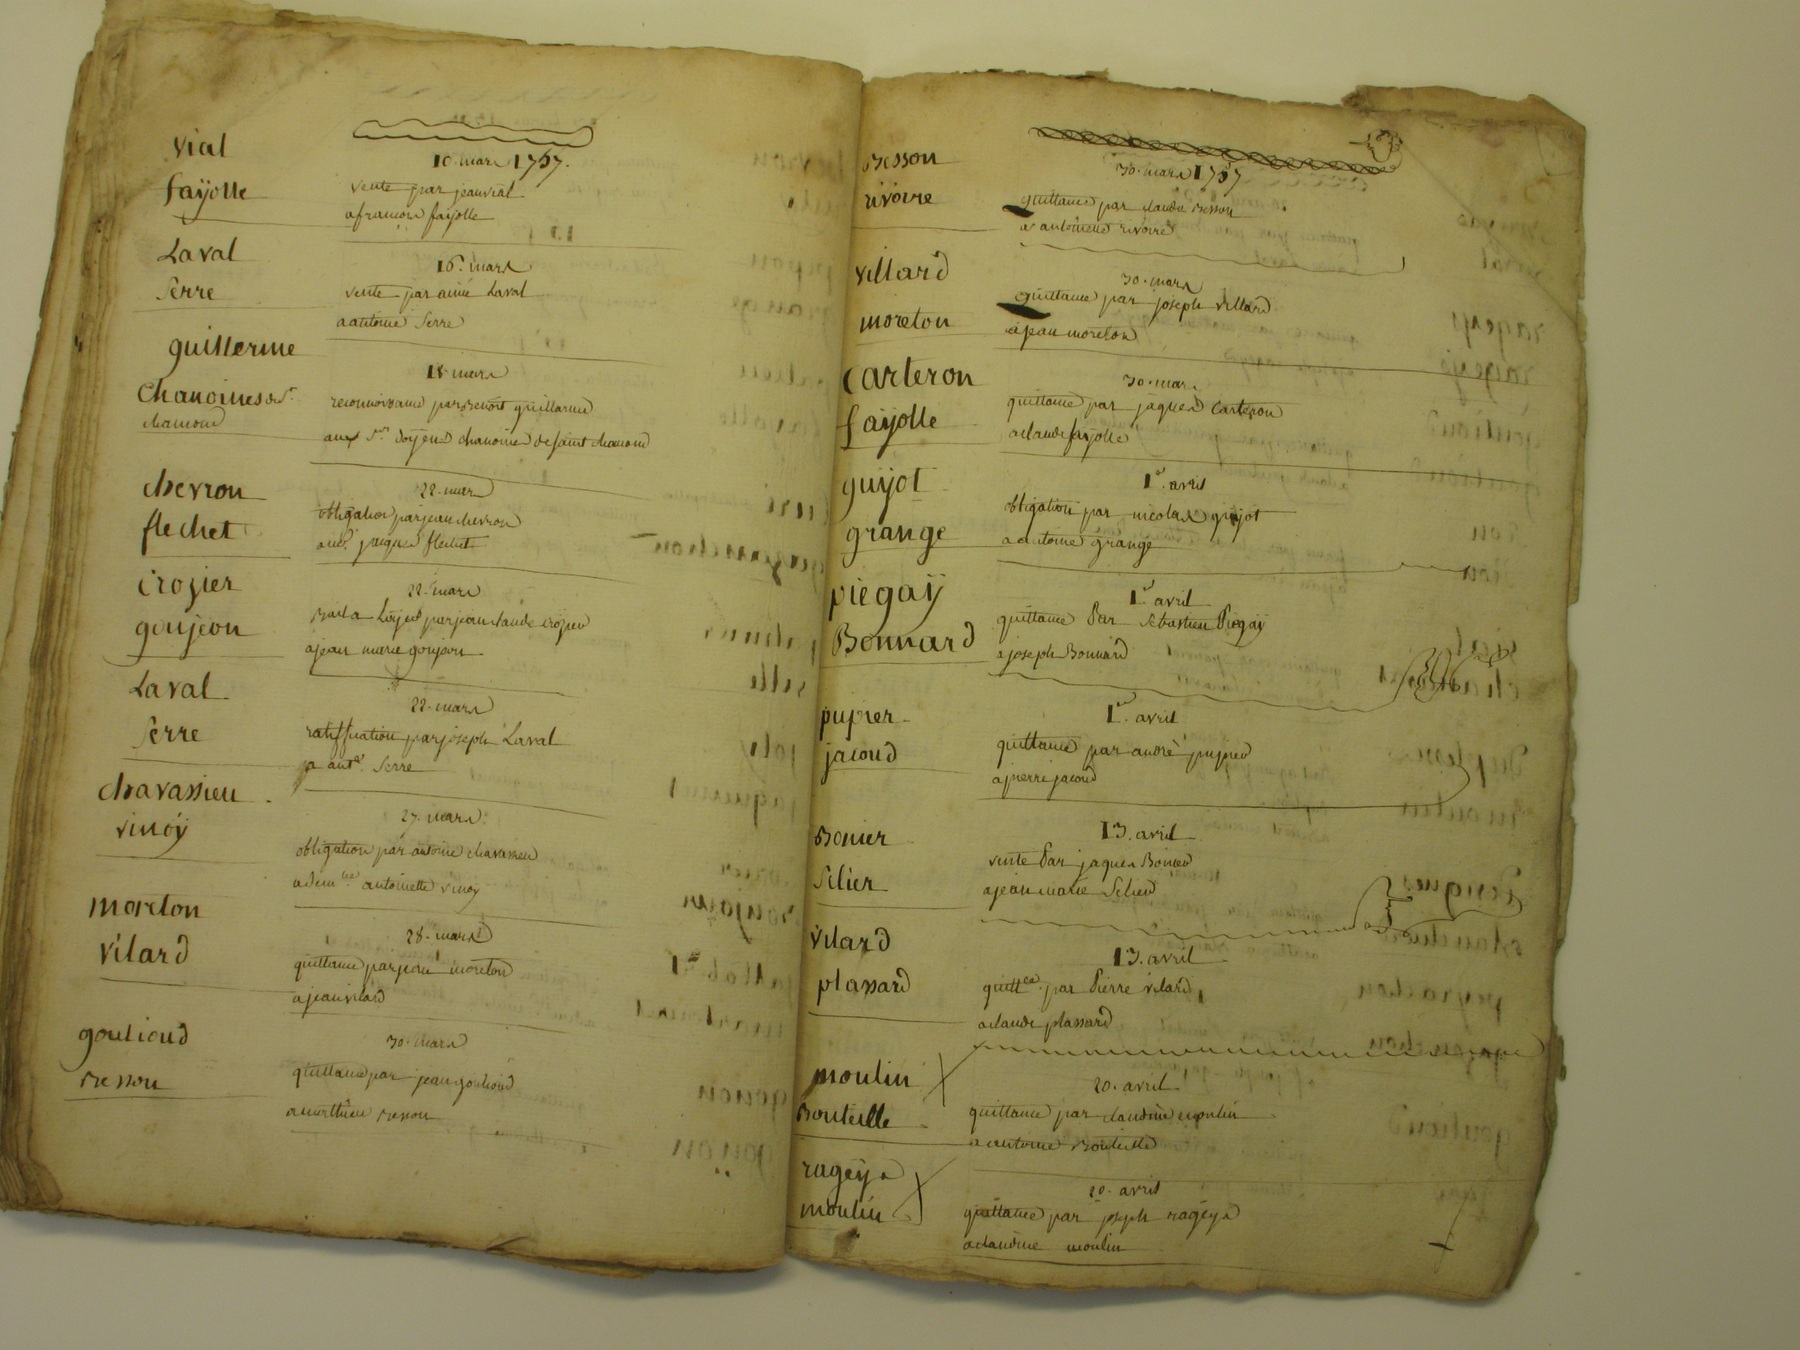 vial
10. mars 1757.
fayolle
vente par jean vial
a francois fayolle
Laval
16. mars
Serre
vente par aimé Laval
a antoine Serre
guillerme
18 mars
Chanoines de St
chamond
reconnoissance par Benoit guillarme
aux Srs doyen & chanoines de saint chamond
chevron
22. mars
flechet
obligation par jean chevron
a jaques flechet
crozier
22. mars
goujeon
Bail a Loyer par jean claude crozier
a jean marie goujeon
Laval
22. mars
Serre
ratiffication par joseph Laval
a ante Serre
chavassieu
27. mars
vinoÿ
obligation par antoine chavassieu
a demlle antoinette vinoy
moreton
28. mars
vilard
quittance par jean moreton
a jean vilard
goulioud
30. mars
Besson
quittance par jean goulioud
a Besson
Besson
30. mars 1757
rivoire
quittance par claude Besson
a antoinette rivoire
villard
30. mars
moreton
quittance par joseph villard
a jean moreton
Carteron
30. mars
fayolle
quittance par jaques Carteron
a claude fayolle
guÿot
1er. avril
grange
obligation par nicolas guyot
a antoine grange
piegaÿ
1er avril
Bonnard
quittance Par Sebastien Piegaÿ
a joseph Bonnard
pupier
1er. avril
jacoud
quittance par andré pupier
a pierre jacoud
Bonier
13. avril
Selier
vente Par jaques Bonier
a jean marie Selier
vilard
13. avril
plassard
quittce par Pierre vilard
a claude plassard
moulin
20. avril
Bouteille
quittance par claudine moulin
a antoine Bouteille
rageÿs
20. avril
moulin
quittance par joseph rageys
a claudine moulin